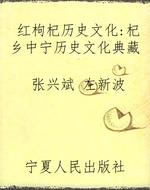 红枸杞历史文化:杞
乡中宁历史文化典藏
张兴斌 左新波
宁夏人民出版社